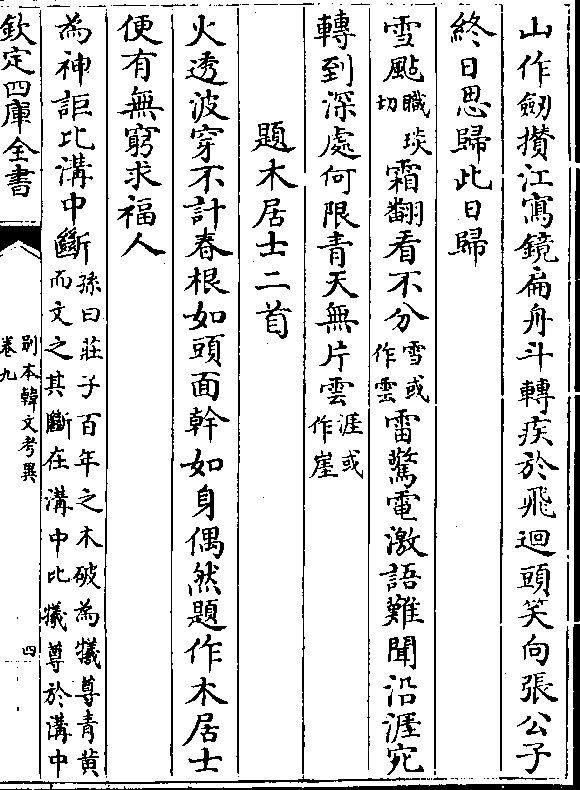 山作劒攅江寫鏡扁舟斗轉疾於飛迴頭笑向張公子
終日思歸此日歸
雪颭職琰切霜翻看不分雪或作雲雷驚電激語難聞沿涯宛
轉到深處何限青天無片雲涯或作崖
題木居士二首
火透波穿不計春根如頭面幹如身偶然題作木居士
便有無窮求福人
為神詎比溝中斷孫曰莊子百年之木破為犧尊青黄而文之其斷在溝中比犧尊於溝中
欽定四庫全書
别本韓文考異
卷九
四